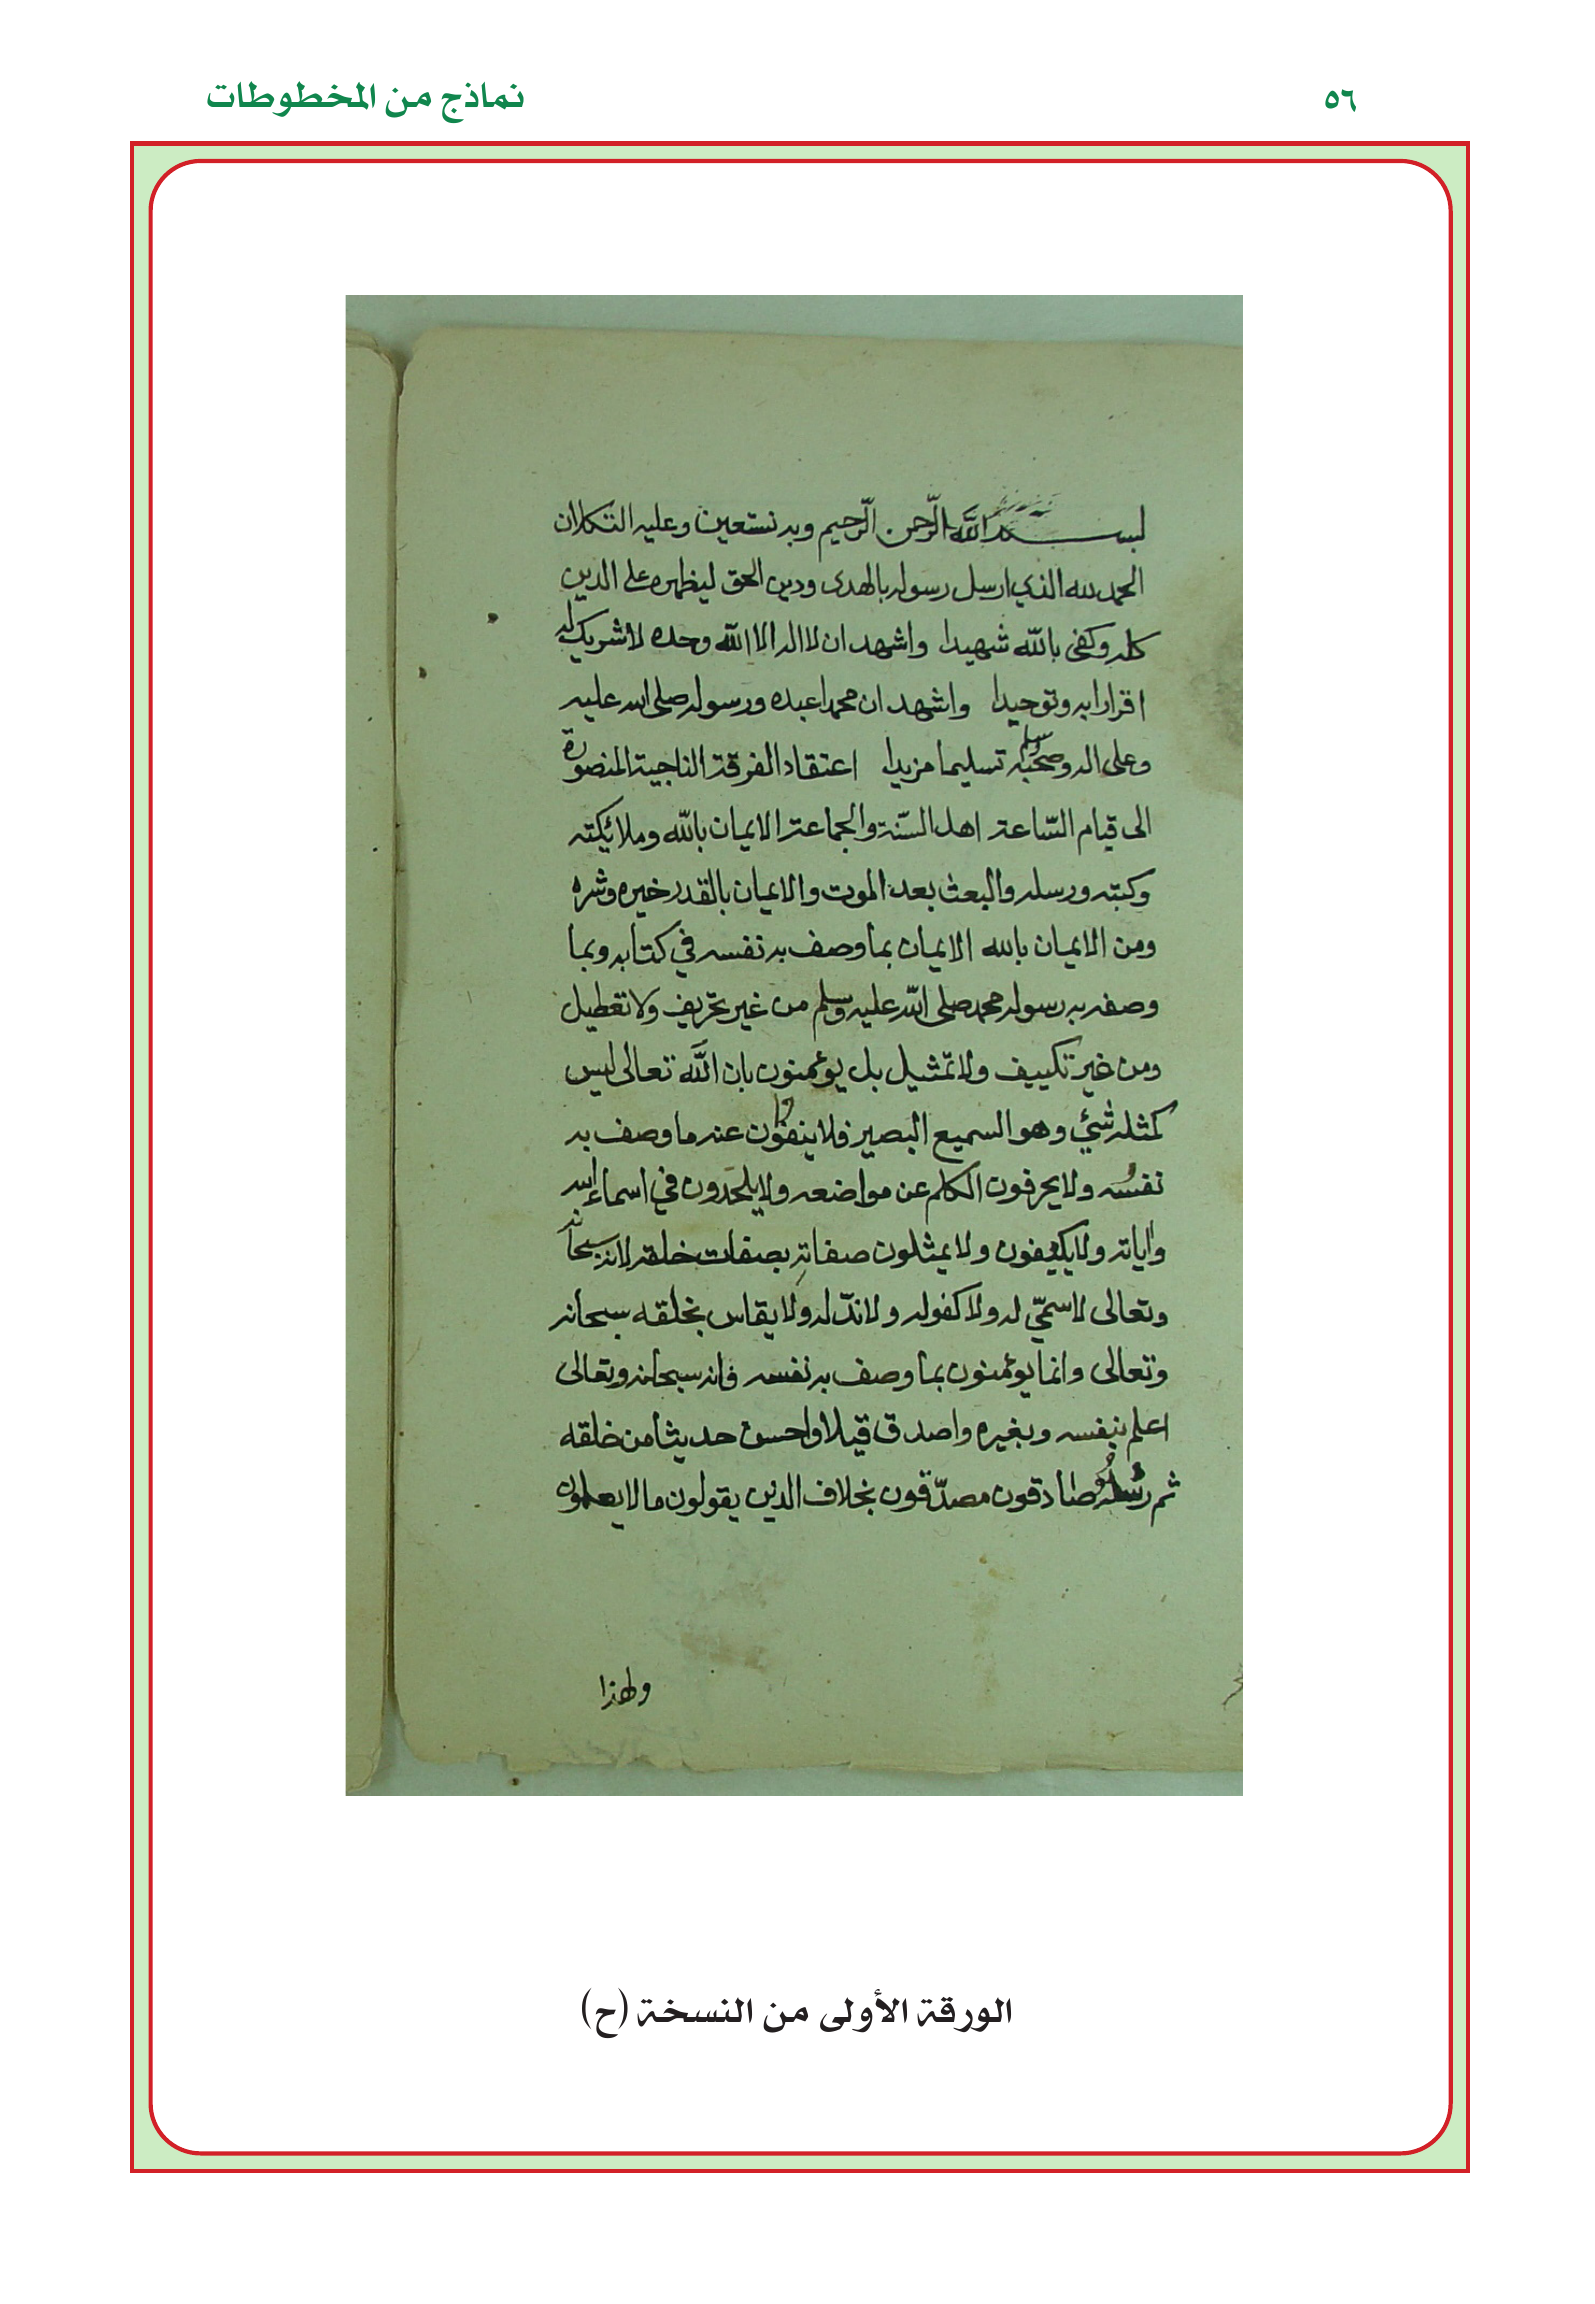 ٥٦
نماذج من المخطوطات
بسم الله الرّحمن الرّحيم وبه نستعين وعليه التكلان
الحمد لله الذي ارسل رسوله بالهدى ودين الحق ليظهره على الدين
كله وكفى بالله شهيدا واشهد ان لا اله الا الله وحده لا شريك له
اقرارا به وتوحيدا واشهد ان محمدا عبده ورسوله صلى الله عليه
وعلى اله وصحبه وسلم تسليما مزيدا اعتقاد الفرقة الناجية المنصورة
الى قيام السّاعة اهل السّنة والجماعة الايمان بالله وملائكته
وكتبه ورسله والبعث بعد الموت والايمان بالقدر خيره وشره
ومن الايمان بالله الايمان بما وصف به نفسه في كتابه وبما
وصفه به رسوله محمد صلى الله عليه وسلم من غير تحريف ولا تعطيل
ومن غير تكييف ولا تمثيل بل يؤمنون بان الله تعالى ليس
كمثله شئ وهو السميع البصير فلا ينفون عنه ما وصف به
نفسه ولا يحرفون الكلم عن مواضعه ولا يلحدون في اسماء الله
واياته ولا يكيفون ولا يمثلون صفاته بصفات خلقه لانه سبحانه
وتعالى لا سميّ له ولا كفو له ولا ندّ له ولا يقاس بخلقه سبحانه
وتعالى وانما يؤمنون بما وصف به نفسه فانه سبحانه وتعالى
اعلم بنفسه وبغيره واصدق قيلا واحسن حديثا من خلقه
ثم رسله صادقون مصدّقون بخلاف الذين يقولون ما لا يعلمون
ولهذا
الورقة الأولى من النسخة (ح)